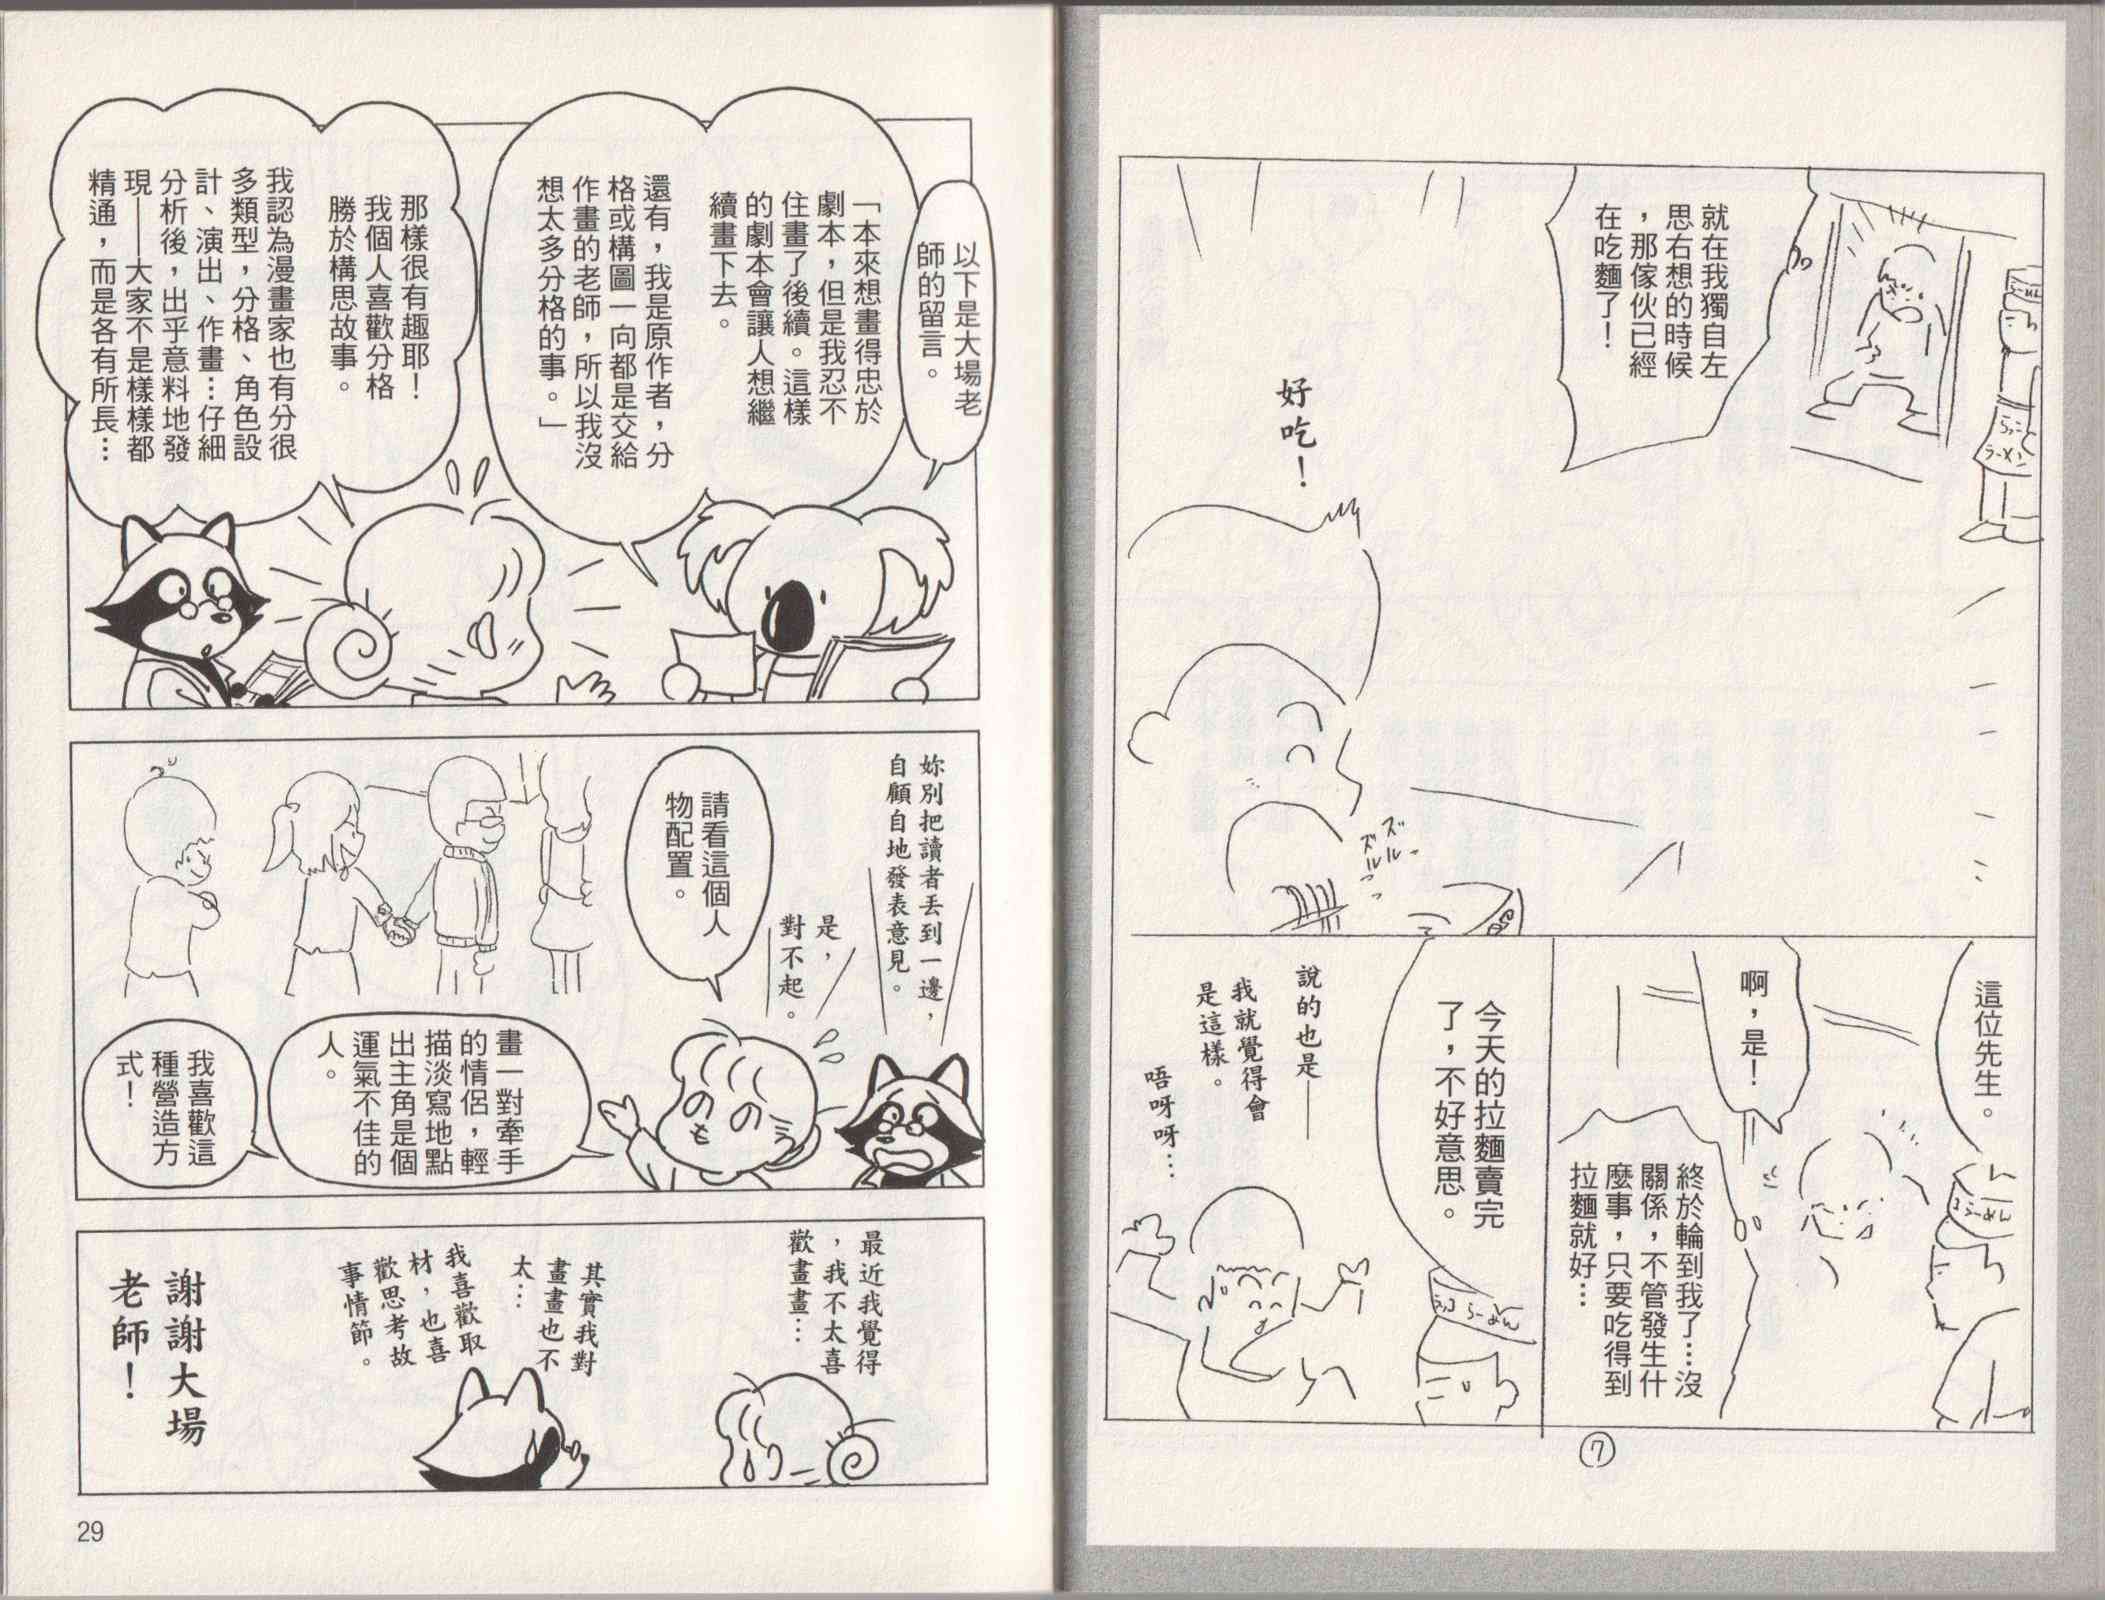 就在我獨自左
思右想的時候
，那傢伙已經
在吃麵了！
らっこ
ラーメン
好吃！
ズズ
ズルル
ルルっ
っ
這位先生。
啊，是！
らーめん
終於輪到我了…沒
關係，不管發生什
麼事，只要吃得到
拉麵就好…
今天的拉麵賣完
了，不好意思。
らっこらーめん
說的也是——
我就覺得會
是這樣。
唔呀呀…
7
以下是大場老
師的留言。
「本來想畫得忠於
劇本，但是我忍不
住畫了後續。這樣
的劇本會讓人想繼
續畫下去。
還有，我是原作者，分
格或構圖一向都是交給
作畫的老師，所以我沒
想太多分格的事。」
那樣很有趣耶！
我個人喜歡分格
勝於構思故事。
我認為漫畫家也有分很
多類型，分格、角色設
計、演出、作畫…仔細
分析後，出乎意料地發
現——大家不是樣樣都
精通，而是各有所長…
妳別把讀者丟到一邊，
自顧自地發表意見。
是，
對不起。
請看這個人
物配置。
畫一對牽手
的情侶，輕
描淡寫地點
出主角是個
運氣不佳的
人。
我喜歡這
種營造方
式！
最近我覺得
，我不太喜
歡畫畫…
其實我對
畫畫也不
太…
我喜歡取
材，也喜
歡思考故
事情節。
謝謝大場
老師！
29